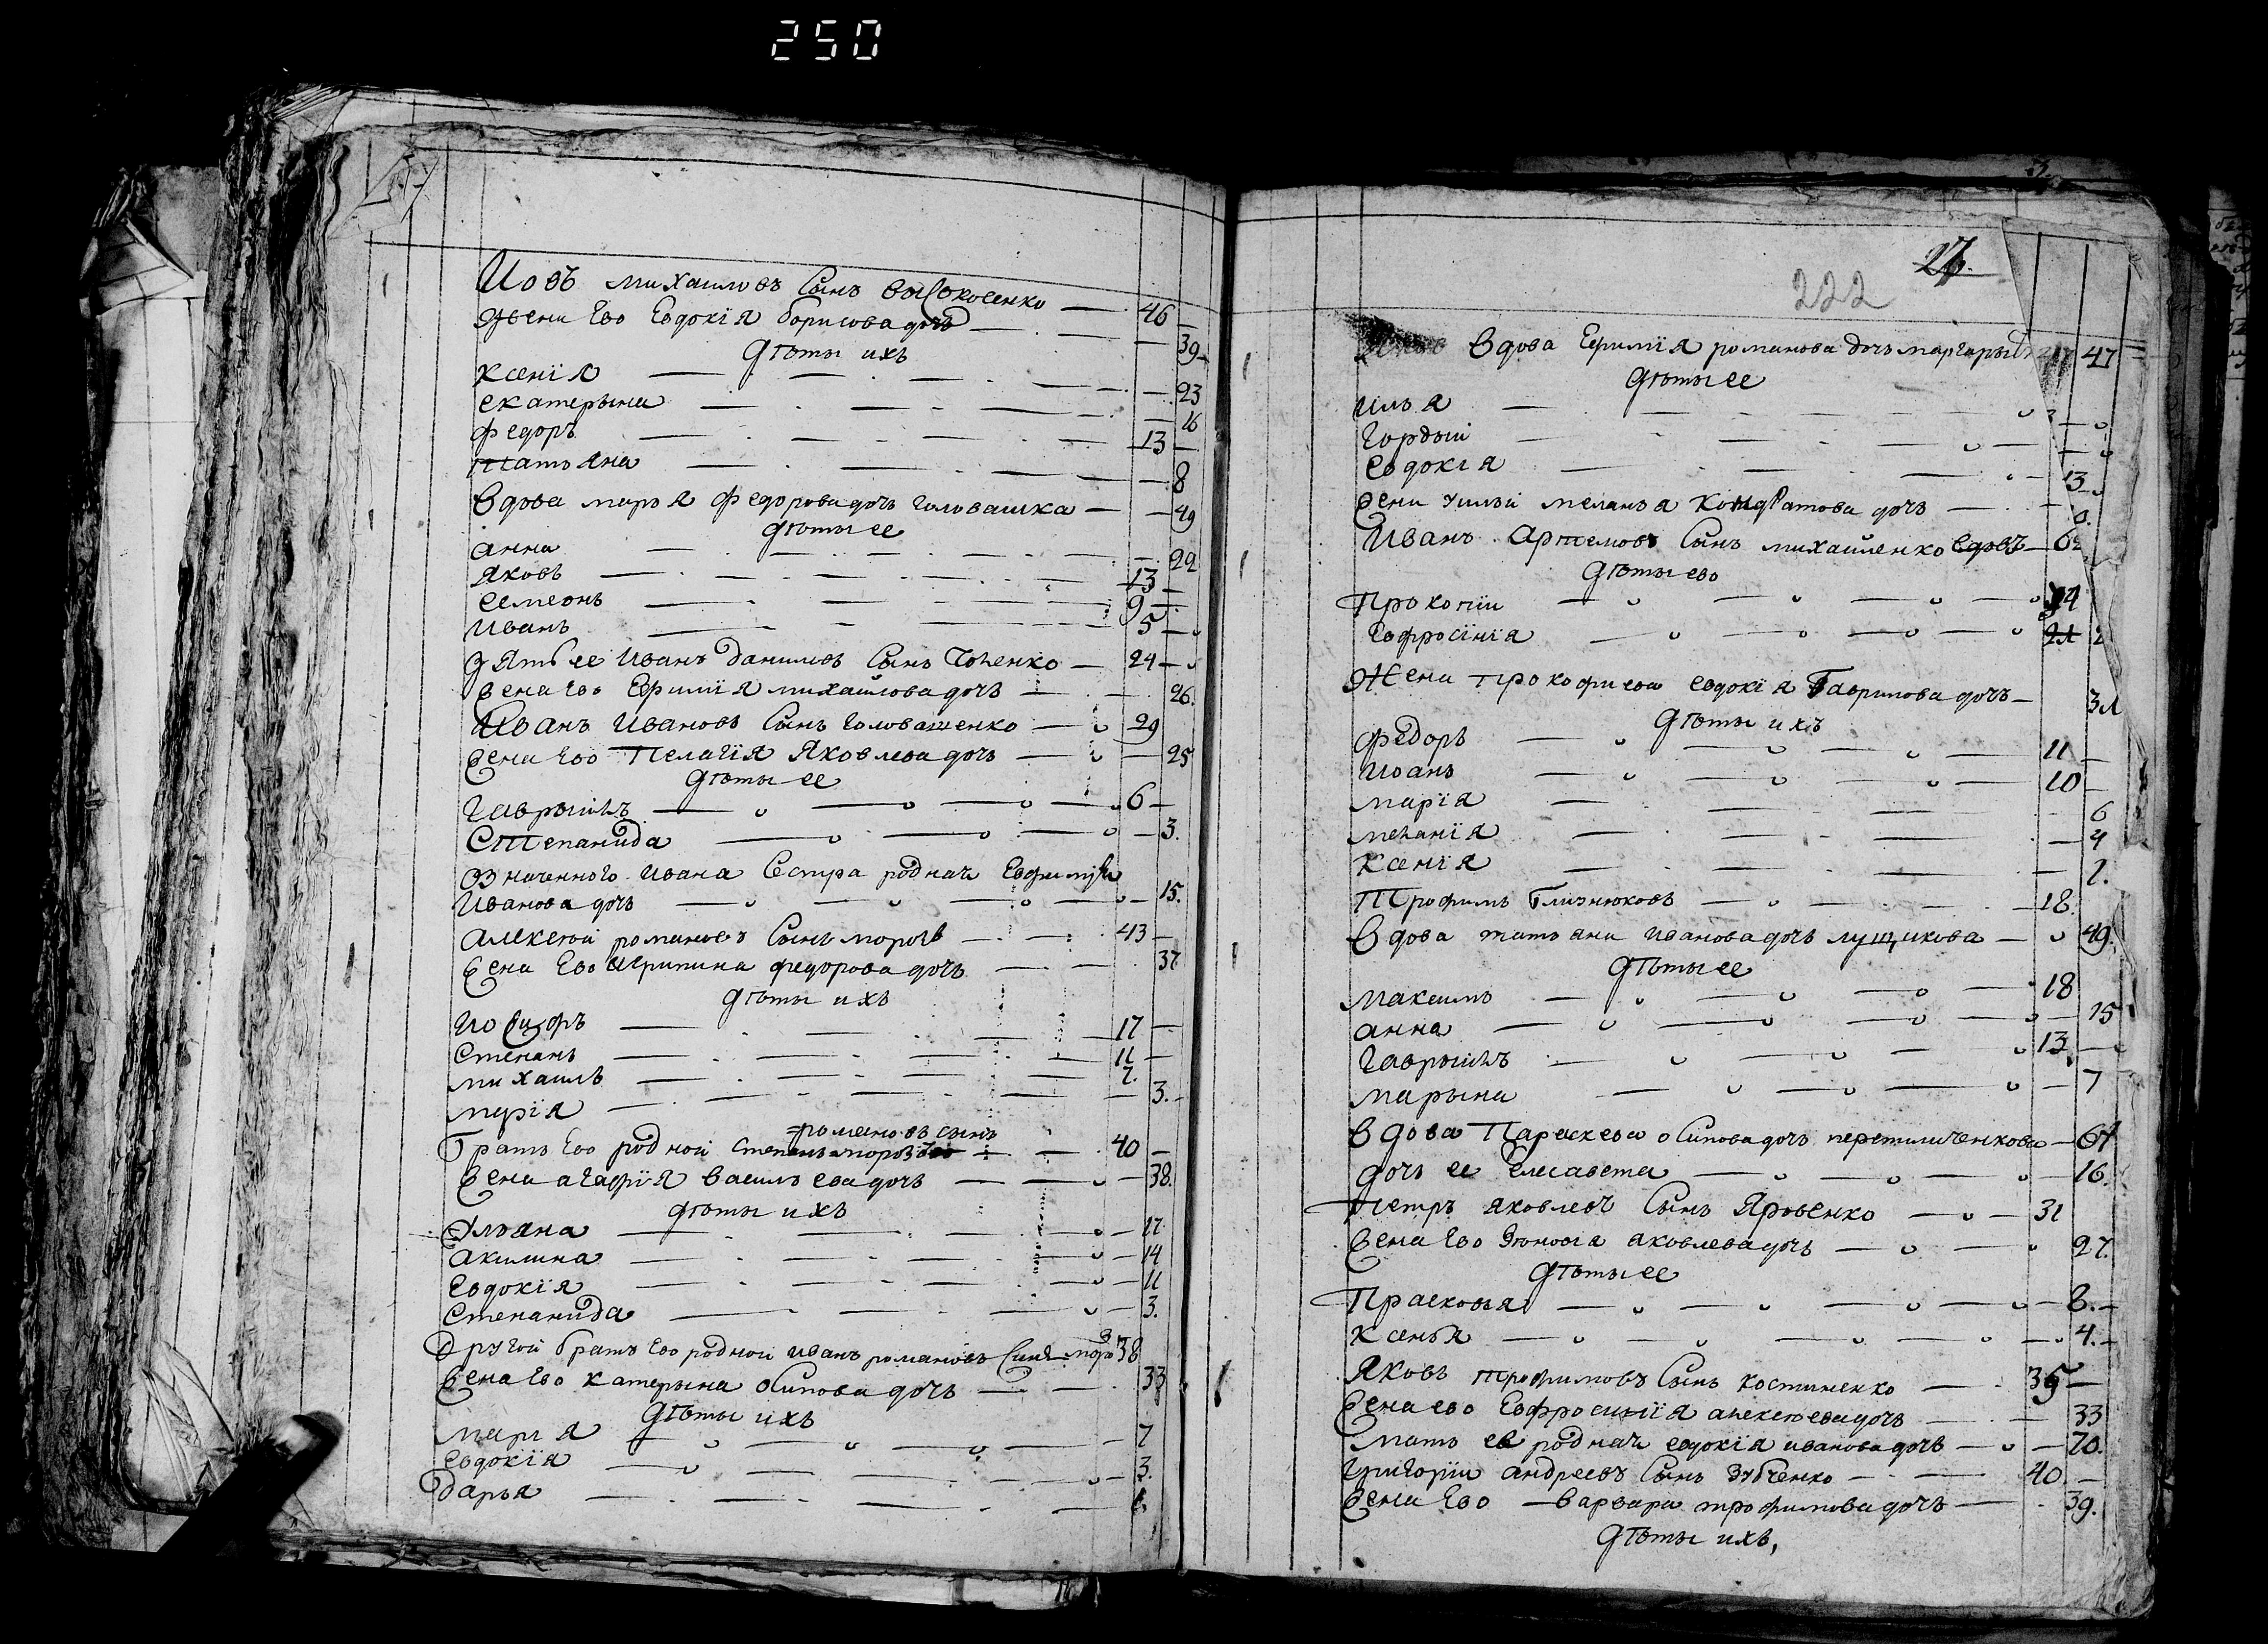 250
Иовъ михаиловъ Сынъ высокосенко — 46 —
Жена Ево Евдокїя борисова дочь — — 39
дѣты ихъ
Ксенїя — — 23
екатерына — — 16
федоръ — 13 —
татьяна — — 8
Вдова марья федорова дочь головашка — — 49
дѣты ее
анна — — 22
яковъ — 13 —
семеонъ — 9 —
иванъ — 5 —
зять ее Иванъ даниловъ Сынъ — 24 —
жена Ево Ефимїя михаилова дочь — — 26.
Иванъ Ивановъ Сынъ головашенко — 29
жена Ево Пелагїя Яковлева дочь — — 25
дѣты ее
гаврыилъ — 6 —
Степанида — — 3.
означенного Ивана Сестра роднаѧ Евфимїѧ
Иванова дочь — — 15.
алексѣй романовъ Сынъ морозъ — 43 —
жена Ево Агрипина федорова дочь — 37
дѣты ихъ
Иосифъ — 17 —
Степанъ — 11 —
михаилъ — 7.
марїя — — 3.
=романовъ сынъ
братъ Ево родной степанъ — 40 —
жена агафїя васильева дочь — — 38.
дѣты ихъ
Ульяна — — 17
акилина — — 14
Евдокїя — — 11
Степанида — — 3.
другой братъ Ево родной иванъ романовъ Сынъ морозъ 38
жена Ево катерына осипова дочь — — 33
дѣты ихъ
марья — — 7
Евдокїя — — 3.
дарья —
27.
222
Вдова Ефимїя романова дочь — 47
дѣты ее
илья —
гордѣй —
евдокїя — 13
жена ильи меланья Кондратова дочь —
Иванъ Артемовъ Сынъ михайленко вдовъ —
дѣты ево
Прокопїи —
Евфросїнїя —
Жена прокофиева евдокїя Гаврилова дочь —
дѣты ихъ
федоръ — 11 —
Иванъ — 10 —
марїя — 6
меланїя — 4
ксенїя — 2.
Трофимъ близнюковъ — 18.
Вдова татьяна иванова дочь лущикова — 49.
дѣты ее
максимъ — 18
анна — 15
гаврыилъ — 13 —
марына — 7
Вдова Параскева осипова дочь — 64
дочь ее Елисавета — 16.
петръ яковлевъ Сынъ Яровенко — 31
жена Ево Зѣновїя яковлева дочь — 27.
дѣты ее
Прасковья — 8. —
ксенья — 4. —
Яковъ трофимовъ Сынъ костиненко — 35 —
жена ево Евфросинїя алексѣева дочь — 33
мать ев роднаѧ евдокїя иванова дочь — 70.
григорїи андреевъ Сынъ зубченко — 40 —
жена Ево — варвара трофимова дочь — 39.
дѣты ихъ,